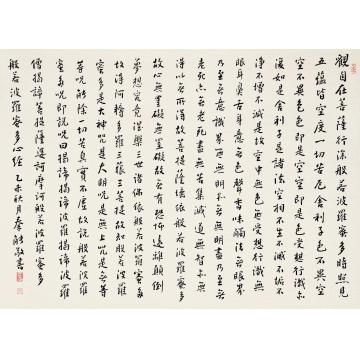 觀自在菩薩行深般若波羅蜜多時照見
五蘊皆空度一切苦厄舍利子色不異空
空不異色色即是空空即是色受想行識亦
復如是舍利子是諸法空相不生不滅不垢不
淨不增不減是故空中無色無受想行識無
眼耳鼻舌身意無色聲香味觸法無眼界
乃至無意識界無無明亦無無明盡乃至無
老死亦無老死盡無苦集滅道無智亦無
得以無所得故菩提薩埵依般若波羅蜜多
故心無罣礙無罣礙故無有恐怖遠離顛倒
夢想究竟涅槃三世諸佛依般若波羅蜜多
故得阿耨多羅三藐三菩提故知般若波羅
蜜多是大神咒是大明咒是無上咒是無等
等咒能除一切苦真實不虛故說般若波羅
蜜多咒即說咒曰揭諦揭諦波羅揭諦波羅
僧揭諦菩提薩婆訶摩訶般若波羅蜜多
般若波羅蜜多心經 乙未秋月秦敬書